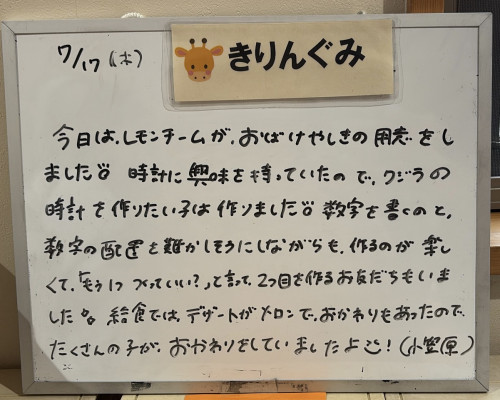 きりんぐみ
7/17(木)
今日は、レモンチームが、おばけやしきの用意をし
ました。時計に興味を持っていたので、クジラの
時計を作りたい子は作りました。数字を書くのと、
数字の配置を難かしそうにしながらも、作るのが楽し
くて、「もう1つつくっていい?」と言って、2つ目を作るお友だちもいま
した。給食では、デザートがメロンで、おかわりもあったので、
たくさんの子が、おかわりをしていましたよ!(小笠原)